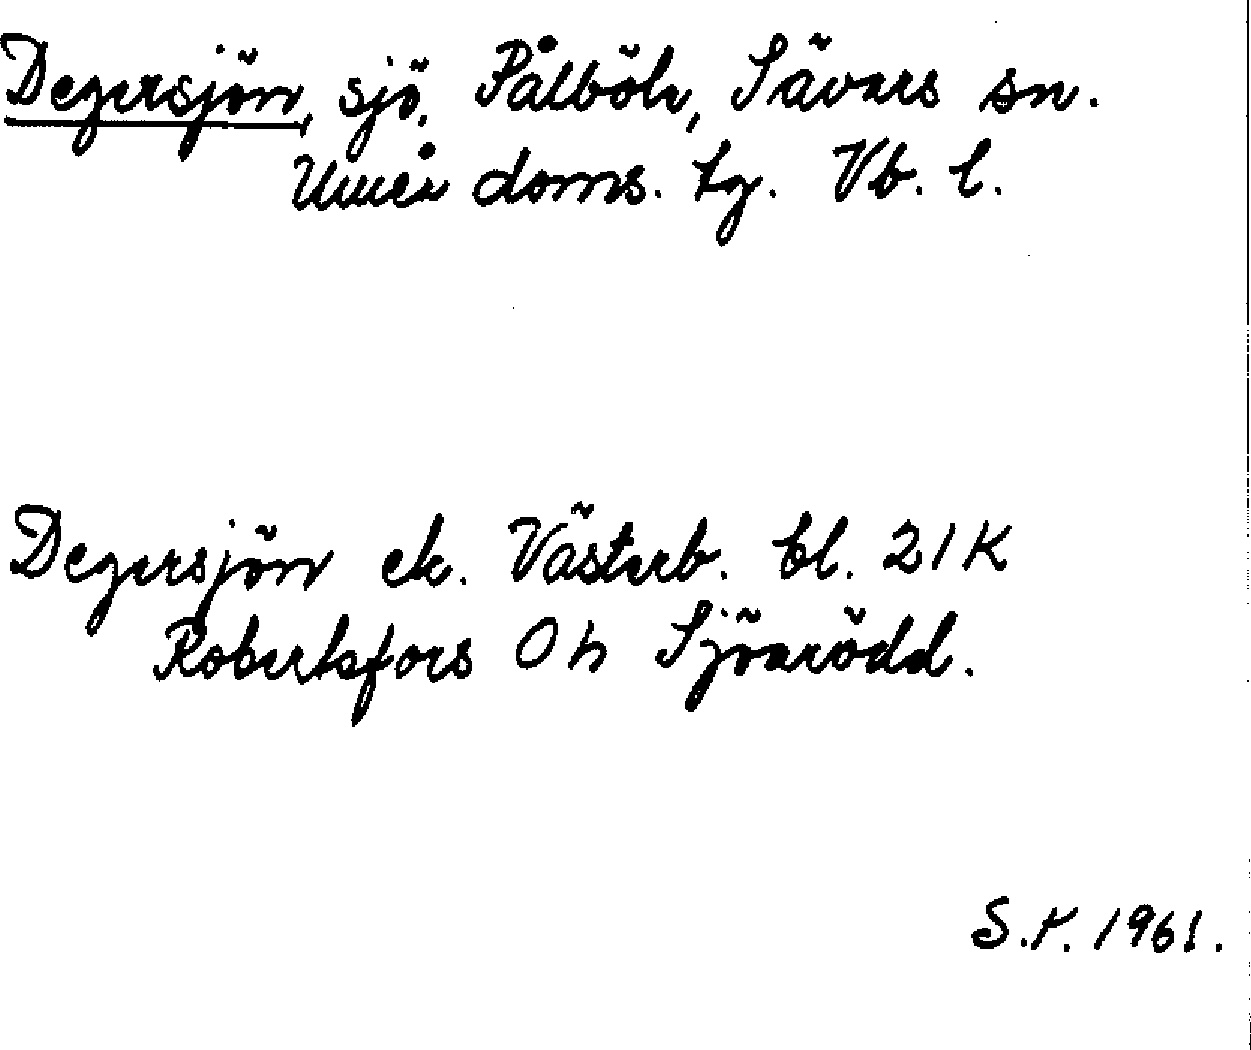 Degersjön, sjö. Pålböle, Sävars sn.
Umeå doms. tg. Vb. l.
Degersjön ek. Västerb. bl. 21K
Robertsfors 0h Sjöarödd.
S.K. 1961.